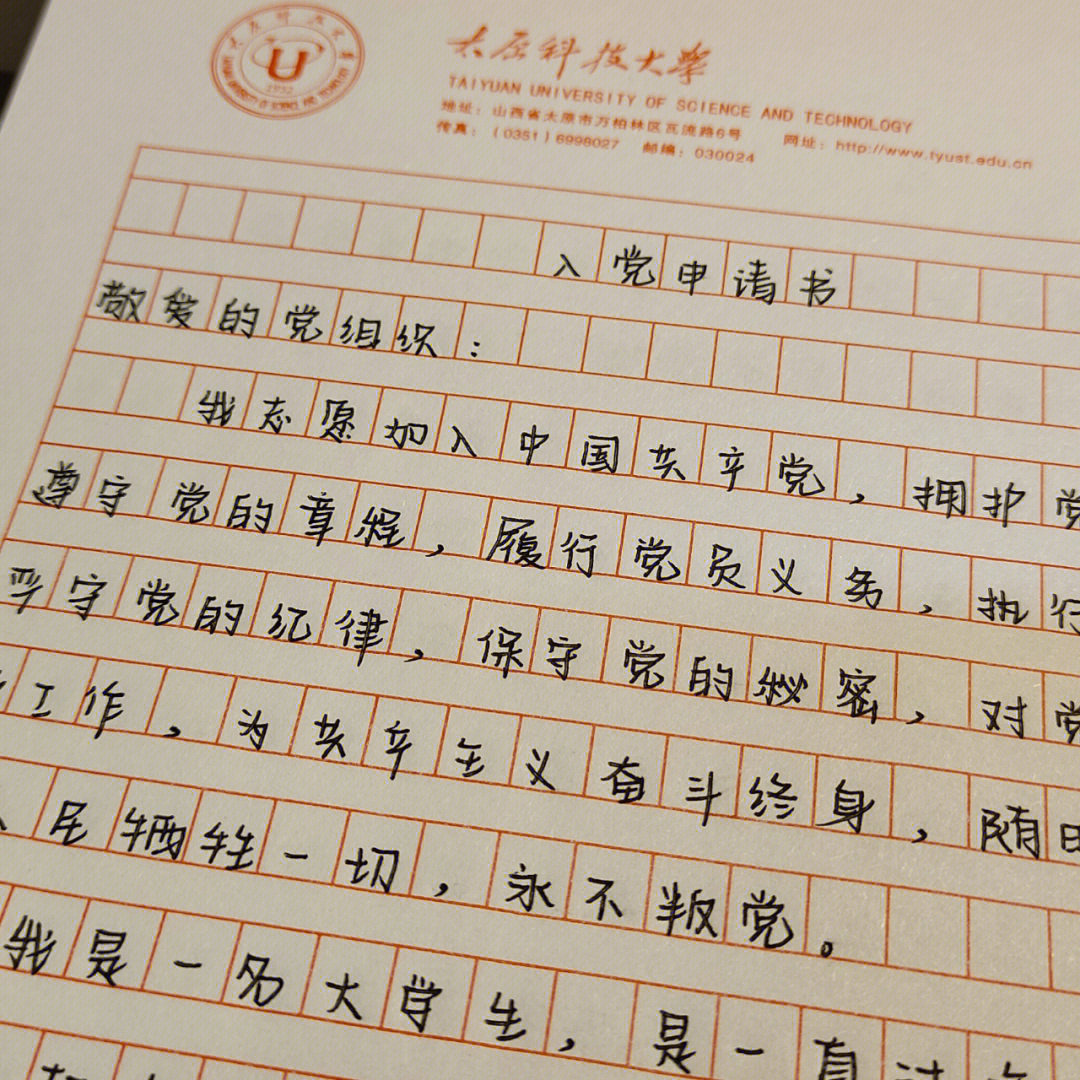 太原科技大学
TAIYUAN UNIVERSITY OF SCIENCE AND TECHNOLOGY
地址：山西省太原市万柏林区瓦流路6号 网址：http://www.tyust.edu.cn
传真：（0351）6998027 邮编：030024
U
1952
入党申请书
敬爱的党组织：
我志愿加入中国共产党，拥护党
遵守党的章程，履行党员义务，执行
守党的纪律，保守党的秘密，对党
工作，为共产主义奋斗终身，随
民牺牲一切，永不叛党。
我是一名大学生，是一直